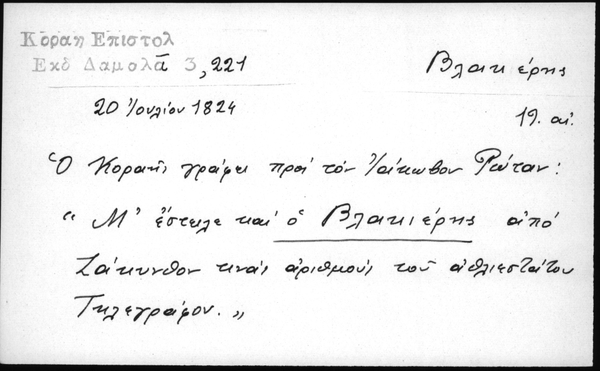 Κοραη Επιστολ
Εκδ Δαμολᾶ 3, 221
Βλακιέρης
20 Ἰουλίου 1824
19. αἰ.
Ὁ Κοραῆς γράφει πρὸς τὸν Ἰάκωβον Ρώταν:
"Μ' ἔστειλε καὶ ὁ Βλακιέρης ἀπό
Ζάκυνθον τινὰς ἀριθμοὺς τοῦ ἀθλιεστάτου
Τηλεγράφου."